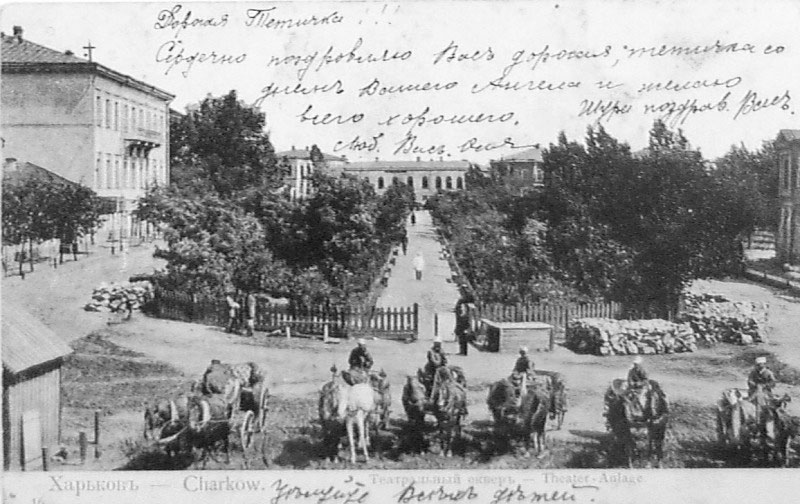 Дорогая Тетичка!!!
Сердечно поздравляю Васъ дорогая, тетичка со
днемъ Вашего Ангела и желаю
всего хорошего. Шура поздрав. Васъ.
Люб. Васъ Оля
Харьковъ — Charkow. Театральный скверъ — Theater-Anlage
16
Цѣлуйте Всѣхъ дѣтей.